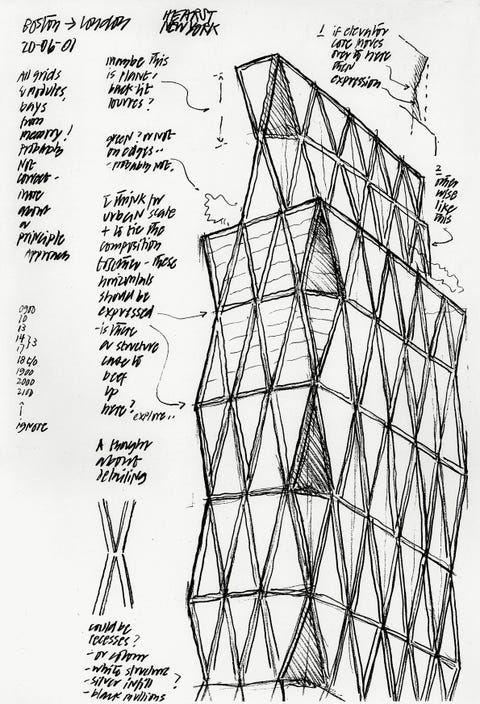 Boston → London
20-06-01
HEARST
NEW YORK
All grids
& modules,
bays
from
memory!
Probably
not
correct -
more
about
a
principle
approach
maybe this
is plant,
back lit
louvres?
green? or not
on edges..
- probably not.
I think for
urban scale
+ to tie the
composition
together - these
horizontals
should be
expressed
- is there
a structure
case to
beef
up
here?
explore..
A thought
about
detailing
could be
recesses?
- or colour
- white structure
- silver infill ?
- black
1 if elevator
core moves
over to here
then
expression
2
other
wise
like
this
0900
10
13
1900
2000
2100